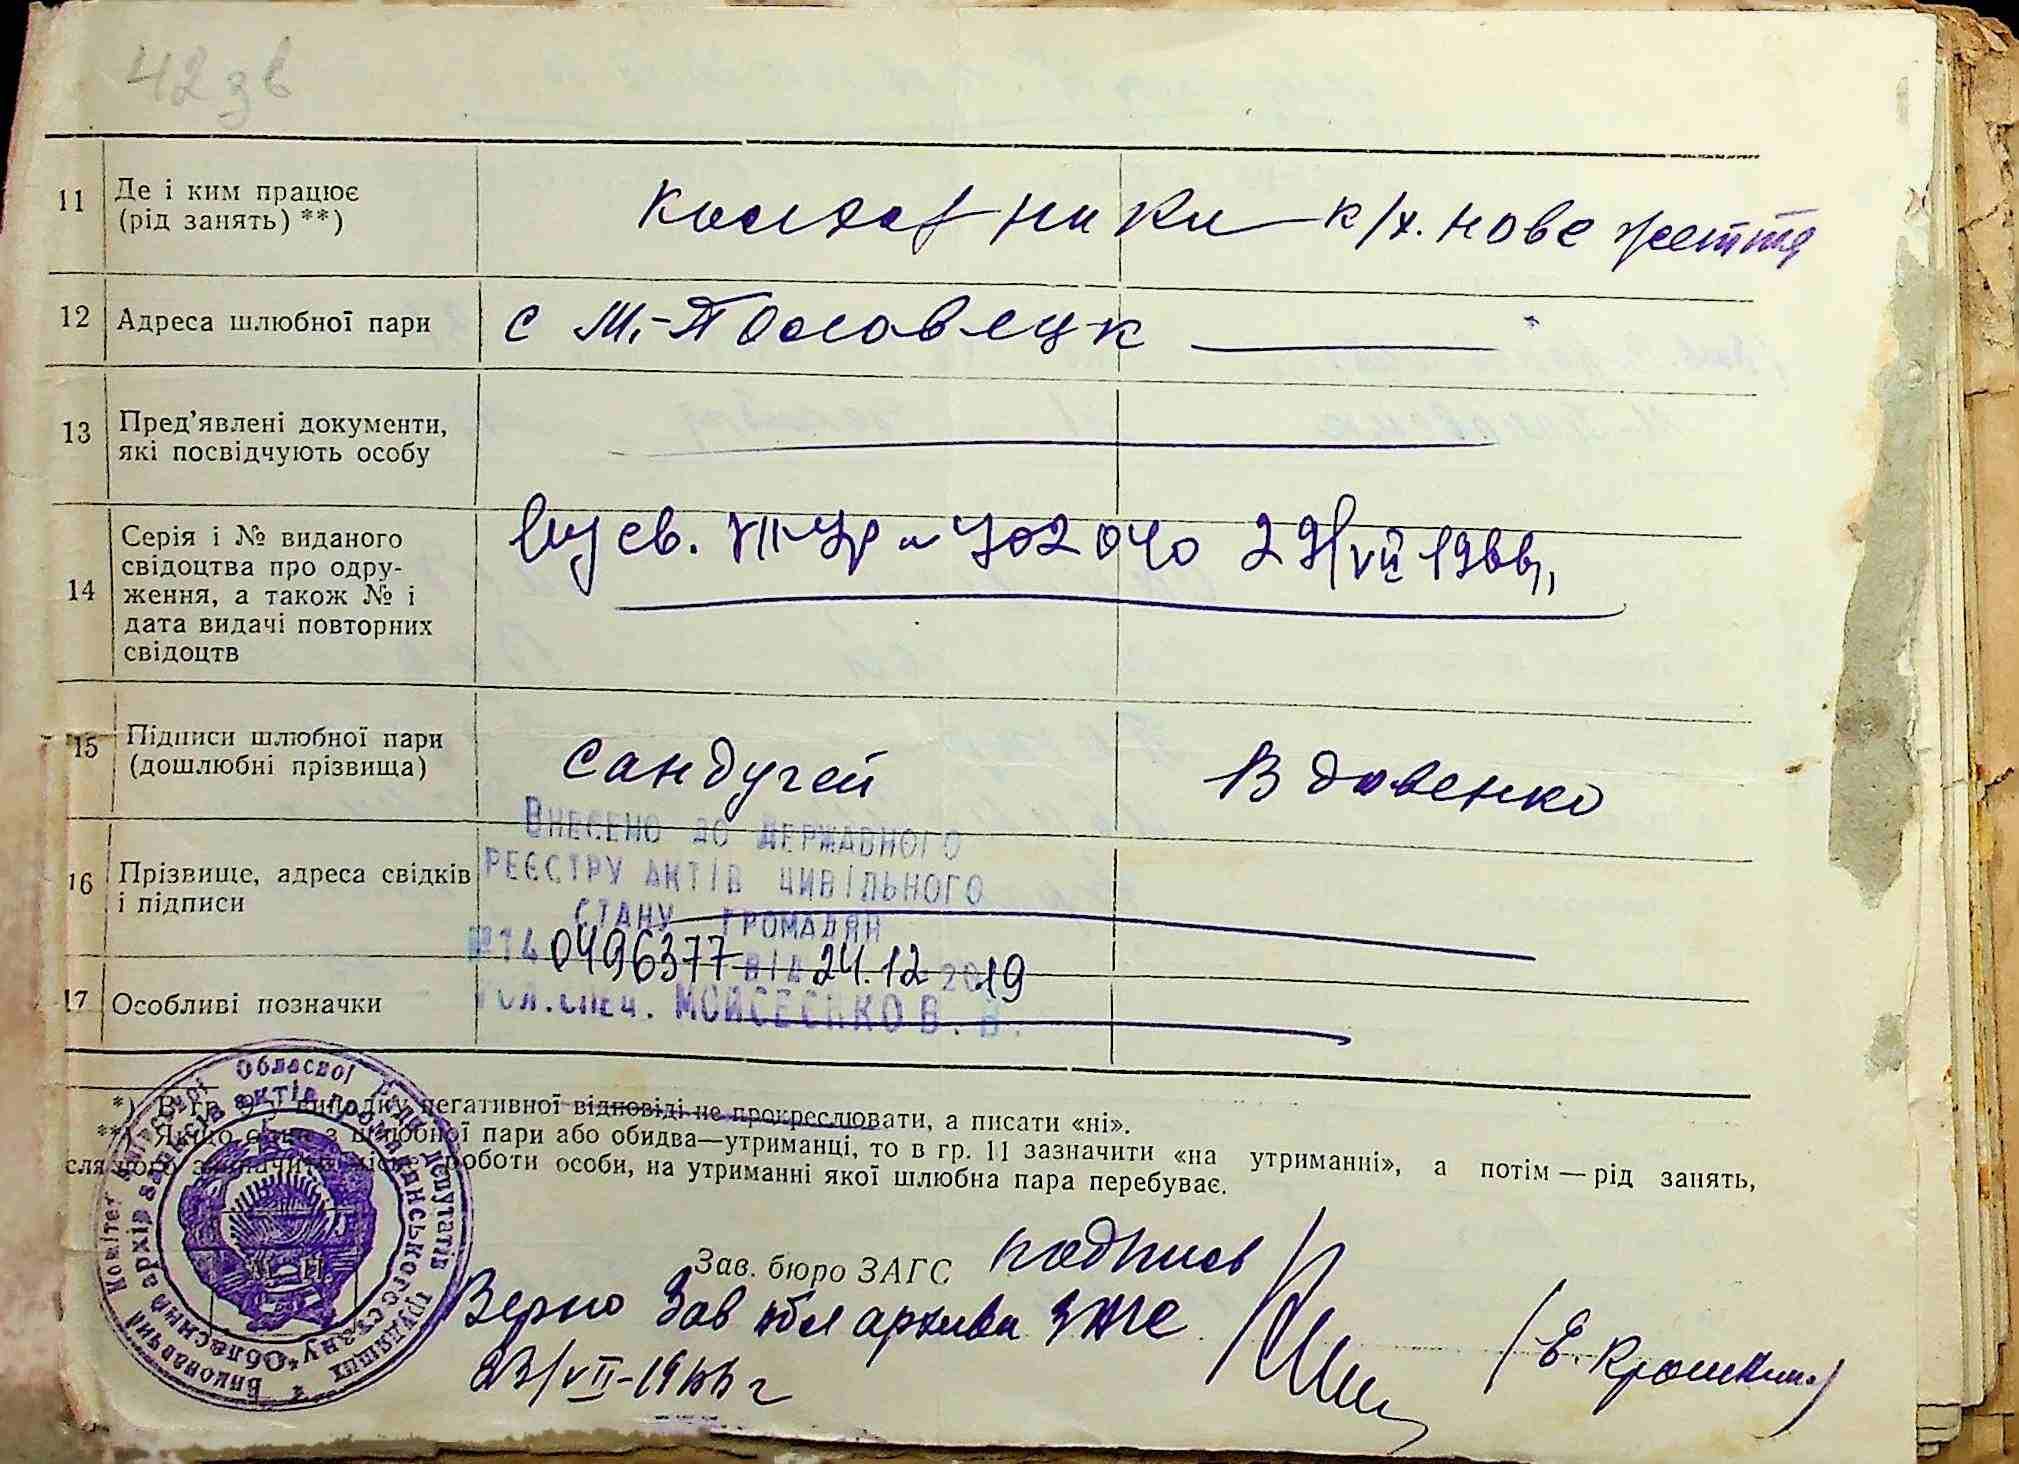 42 зв
11 Де і ким працює (рід занять) **) колхозники к/х. нове життя
12 Адреса шлюбної пари с М.-Половецк
13 Пред'явлені документи, які посвідчують особу
14 Серія і № виданого
свідоцтва про одру-
ження, а також № і
дата видачі повторних
свідоцтв
св. № 402040 29/VII 1966г.
15 Підписи шлюбної пари
(дошлюбні прізвища)
Сандугей Вдовенко
16 Прізвище, адреса свідків
і підписи
Внесено до державного
реєстру актів цивільного
стану громадян
№14 0496377 від 24.12 2019
17 Особливі позначки
Гол.спец. Мойсеєнко В. В.
*) В гр. 9 у випадку негативної відповіді не прокреслювати, а писати «ні».
**) Якщо один з шлюбної пари або обидва—утриманці, то в гр. 11 зазначити «на утриманні», а потім — рід занять,
сля чого зазначити місце роботи особи, на утриманні якої шлюбна пара перебуває.
Виконавчий Комітет Київської Обласної Ради депутатів трудящих
Обласний архів записів актів громадянського стану
Зав. бюро ЗАГС подпись
Верно Зав обл архива ЗАГС
(Е. Крошкин)
23/VII-1966 г